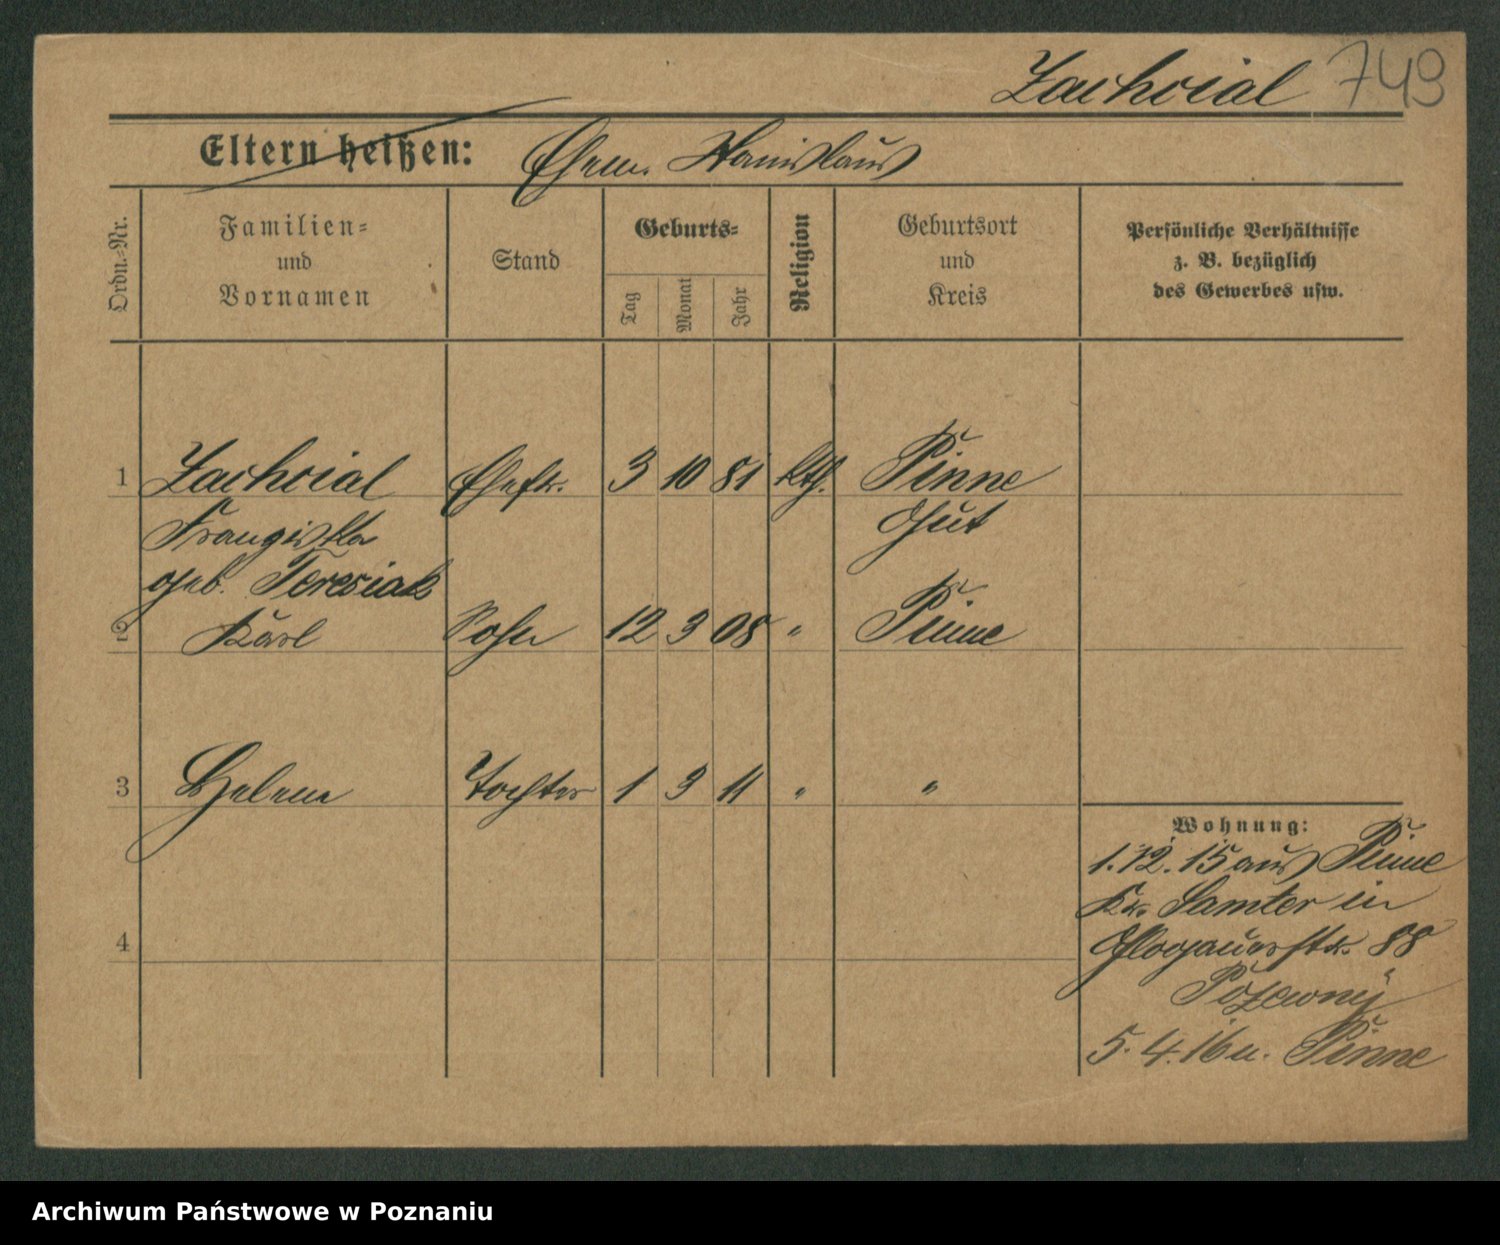 Zachcial 749
Eltern heißen: Ehem. Stanislaus
Ordn.-Nr.
Familien-
und
Vornamen
Stand
Geburts-
Tag
Monat
Jahr
Religion
Geburtsort
und
Kreis
Persönliche Verhältnisse
z. B. bezüglich
des Gewerbes usw.
1 Zachcial Ehefr. 3 10 81 kth. Pinne
Franziska Gut
geb. Teresiak
2 Karl Sohn 12 3 08 " Pinne
3 Helene Tochter 1 3 11 " "
4
Wohnung:
1.12.15 aus Pinne
Kr. Samter in
Glogauerstr. 88
5.4.16 n. Pinne
Archiwum Państwowe w Poznaniu